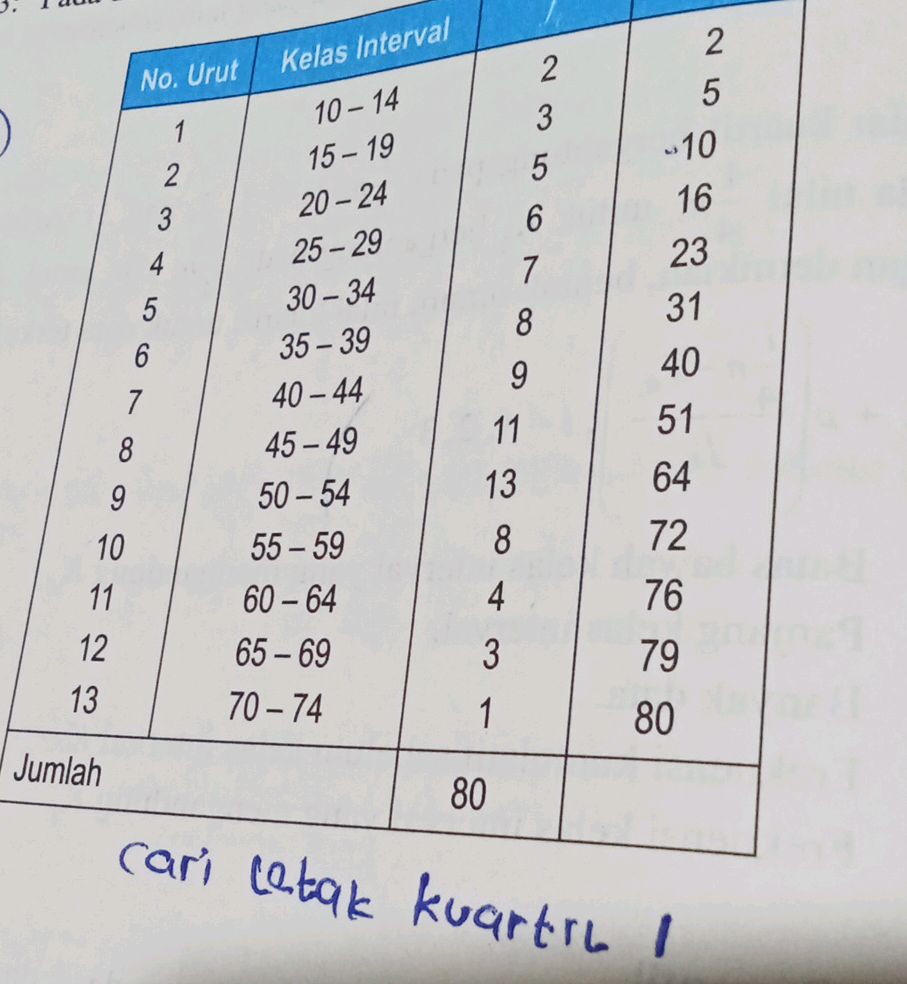 No. Urut Kelas Interval f
1 10 – 14 2 2
2 15 – 19 3 5
3 20 – 24 5 10
4 25 – 29 6 16
5 30 – 34 7 23
6 35 – 39 8 31
7 40 – 44 9 40
8 45 – 49 11 51
9 50 – 54 13 64
10 55 – 59 8 72
11 60 – 64 4 76
12 65 – 69 3 79
13 70 – 74 1 80
Jumlah 80
cari letak kuartil 1